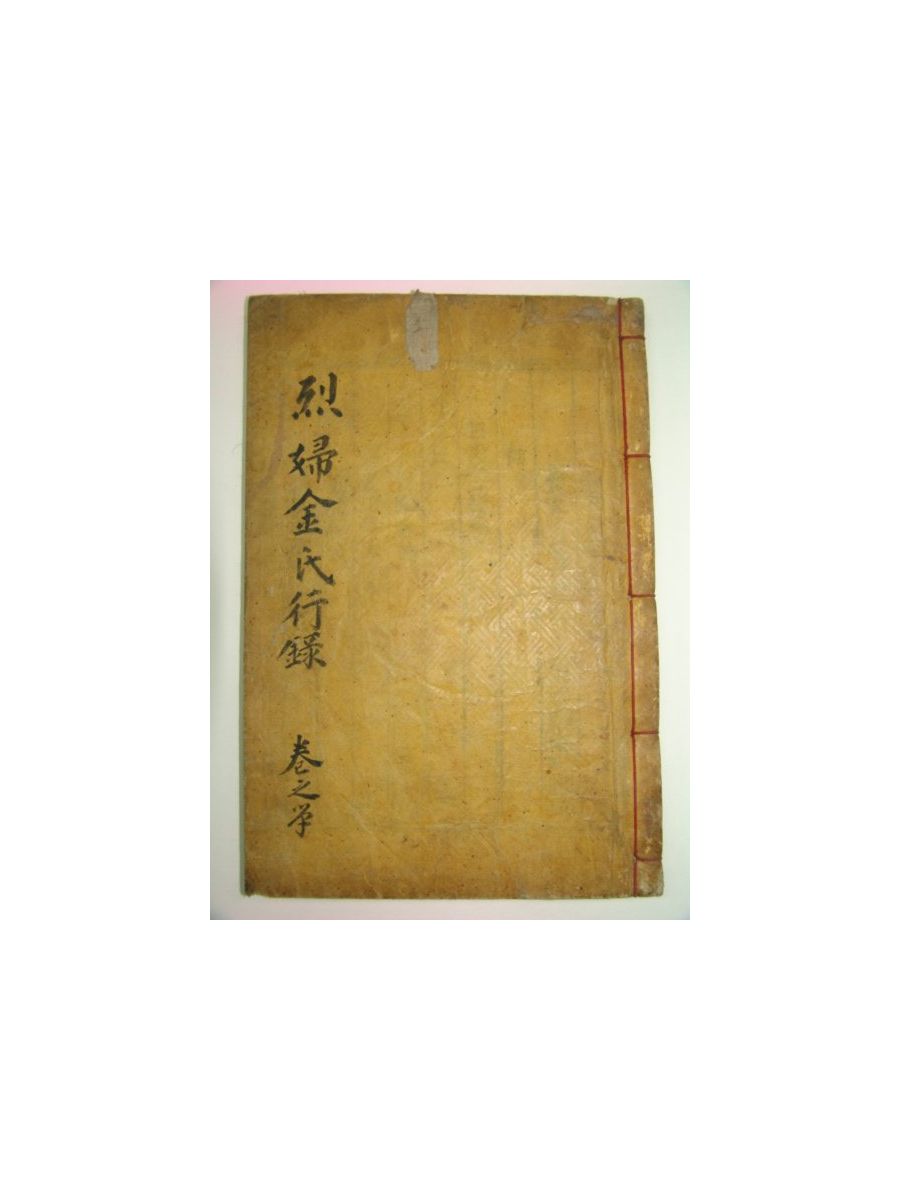 烈婦金氏行錄 卷之